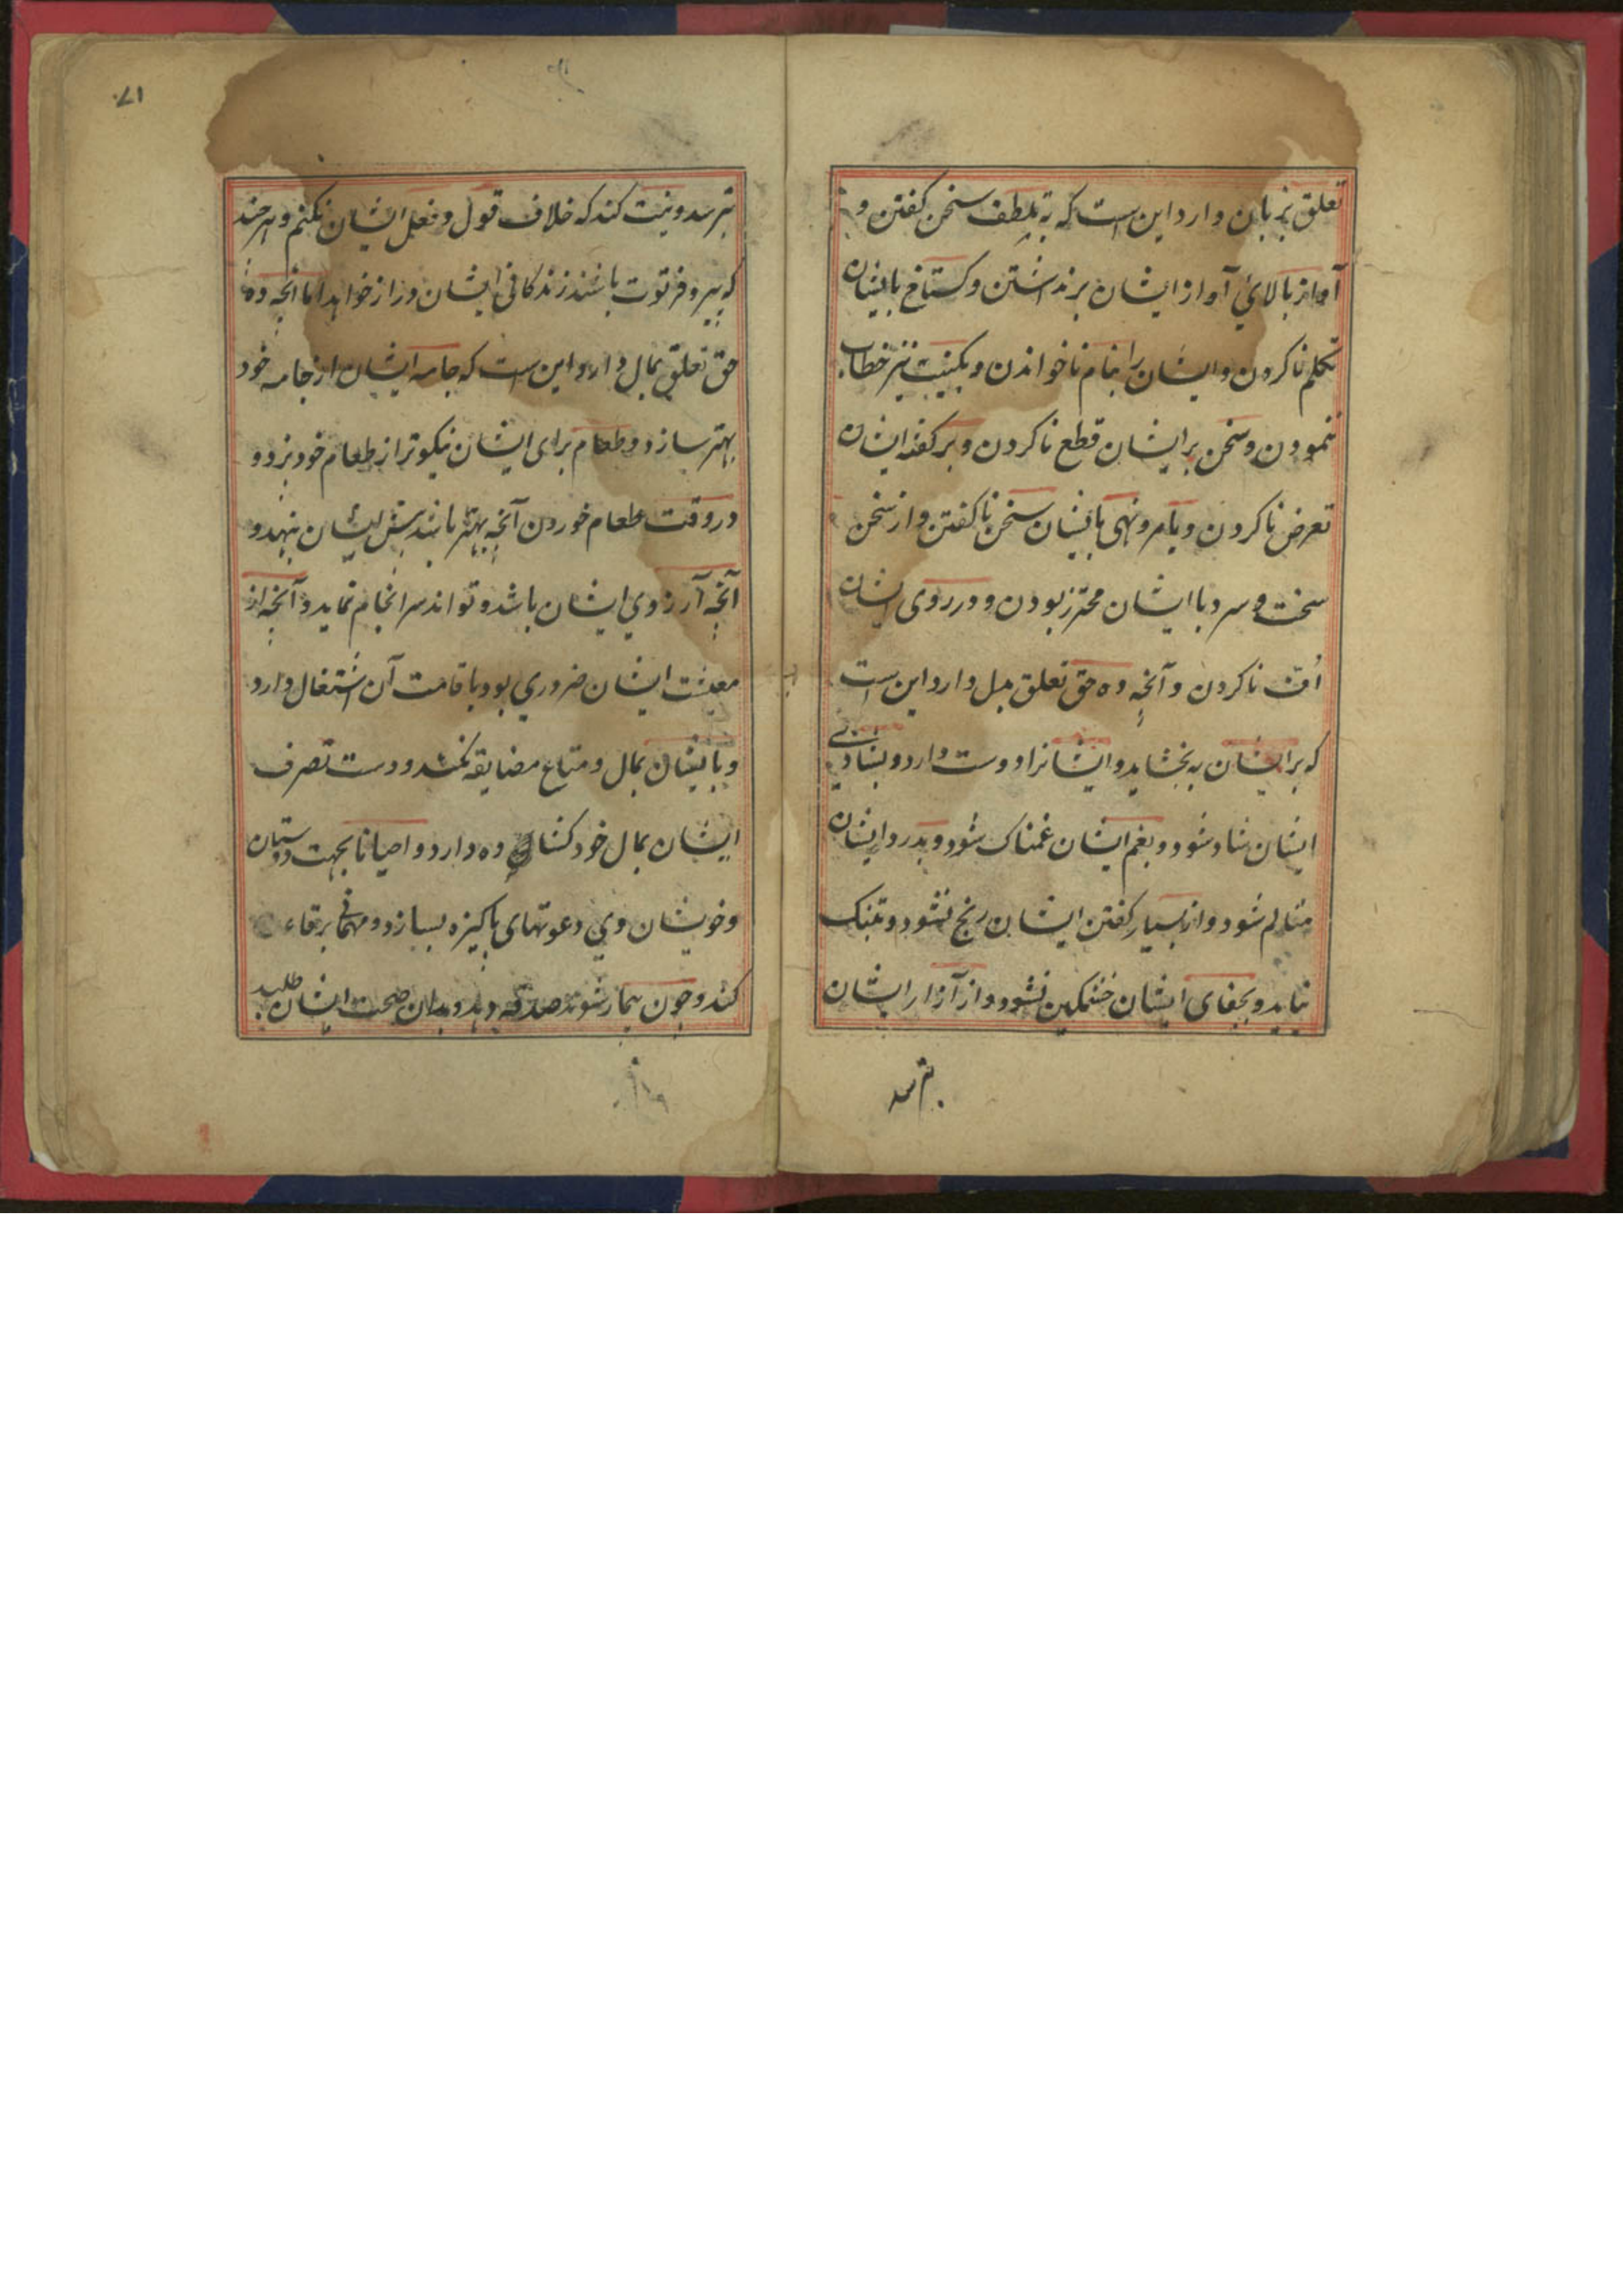 تعلق بزبان دارد این است که به تلطف سخن کفتن و
آواز بالای آواز ایشان برنداشتن و کستاخ باایشان
تکلم ناکردن و ایشان را بنام ناخواندن و بکنیت نیز خطاب
ننمودن و سخن بر ایشان قطع ناکردن و بر کفته ایشان
تعرض ناکردن و بامر و نهی باایشان سخن ناکفتن و از سخن
سخت و سرد با ایشان محترز بودن و در روی ایشان
اُف ناکردن و آنچه ده حق تعلق بدل دارد این است
که بر ایشان به بخشاید و ایشانرا دوست دارد و بشادی
ایشان شاد شود و بغم ایشان غمناک شود و بدرد ایشان
متالم شود و از بسیار کفتن ایشان رنج نشود و تنک
نیاید و بجفای ایشان خشمکین نشود و از آزار ایشان
بترسد
۱۷۰
بترسد و نیت کند که خلاف قول و فعل ایشان نکنم و هرچند
که پیر و فرتوت باشند زندکانی ایشان دراز خواهد اما آنچه ده
حق تعلق بمال دارد این است که جامه ایشان از جامه خود
بهتر سازد و طعام برای ایشان نیکوتر از طعام خود پزد و
در وقت طعام خوردن آنچه بهتر باشد پیش ایشان بنهد و
آنچه آرزوی ایشان باشد و تواند سرانجام نماید و آنچه از
معیشت ایشان ضروری بود باقامت آن اشتغال دارد
و باایشان بمال و متاع مضایقه نکند و دست تصرف
ایشان بمال خود کشاده دارد و احیانا بجهت دوستان
و خویشان وی دعوتهای پاکیزه بسازد و مهمانی برقاء
کند و چون بیمار شوند صدقه دهد و بدان صحت ایشان طلبد